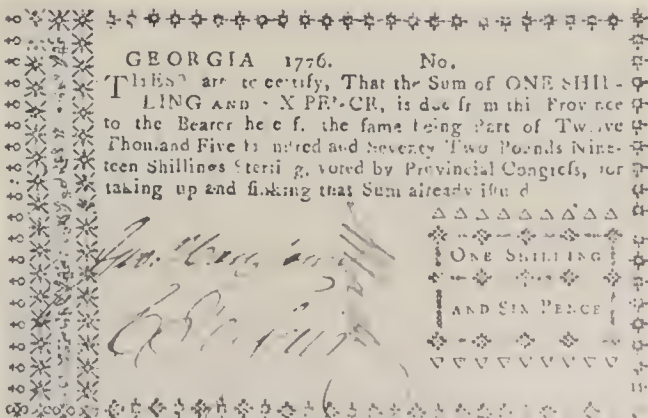 GEORGIA 1776. No.
THESE are to certify, That the Sum of ONE SHIL-
LING AND SIX PENCE, is due from this Province
to the Bearer hereof, the ſame being Part of Twelve
Thouſand Five Hundred and Seventy Two Pounds Nine-
teen Shillings Sterling, voted by Provincial Congreſs, for
taking up and ſinking that Sum already iſſued
ONE SHILLING
AND SIX PENCE